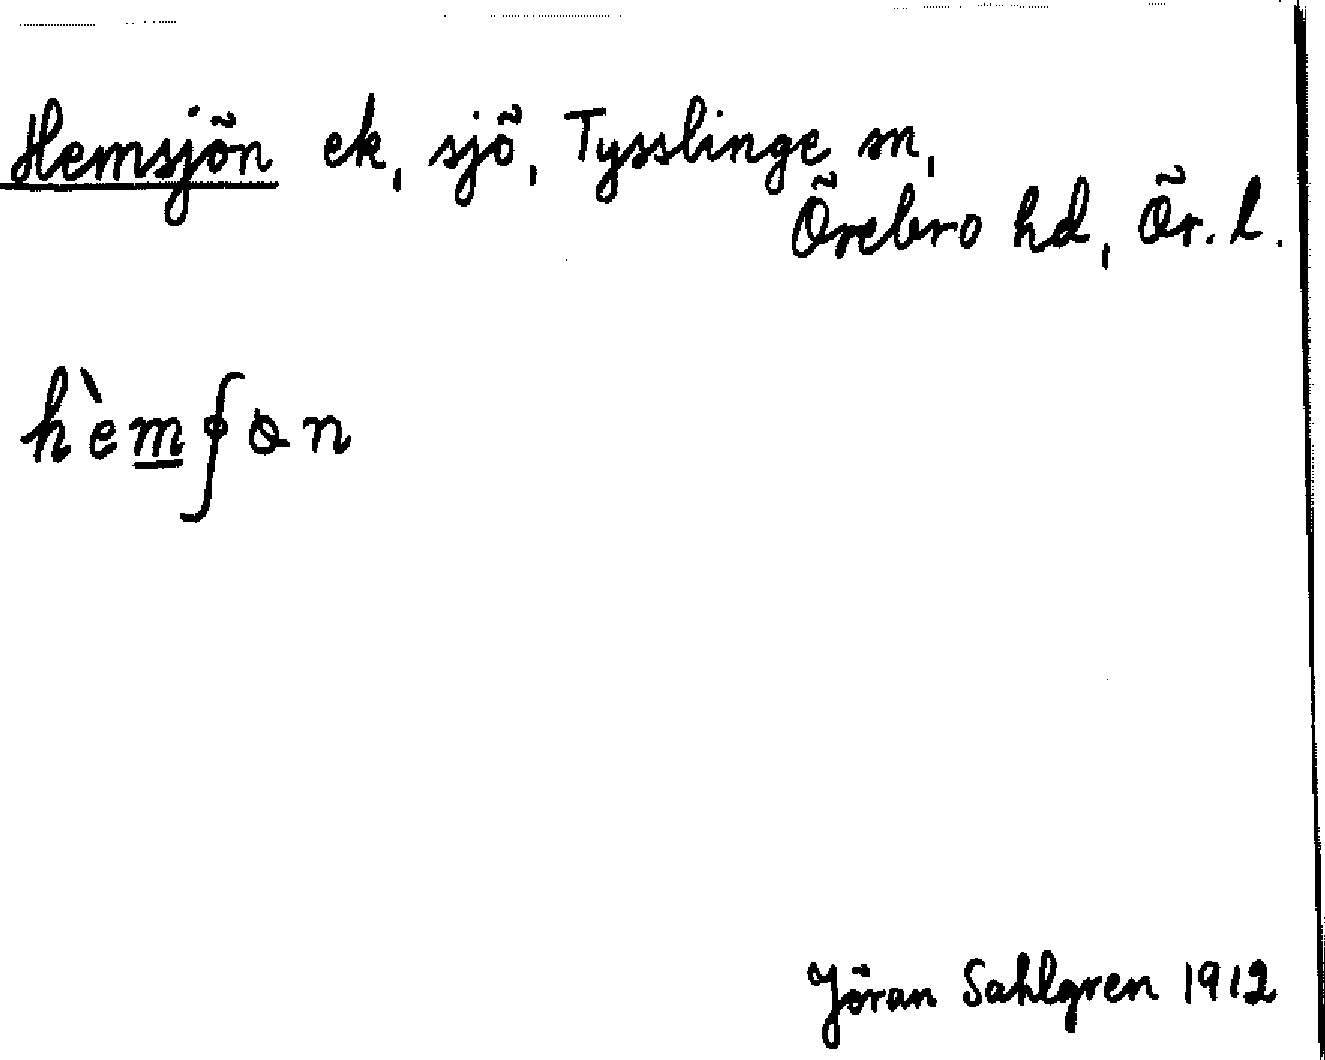 Hemsjön ek, sjö, Tysslinge sn,
Örebro hd, Ör. l.
Jöran Sahlgren 1912